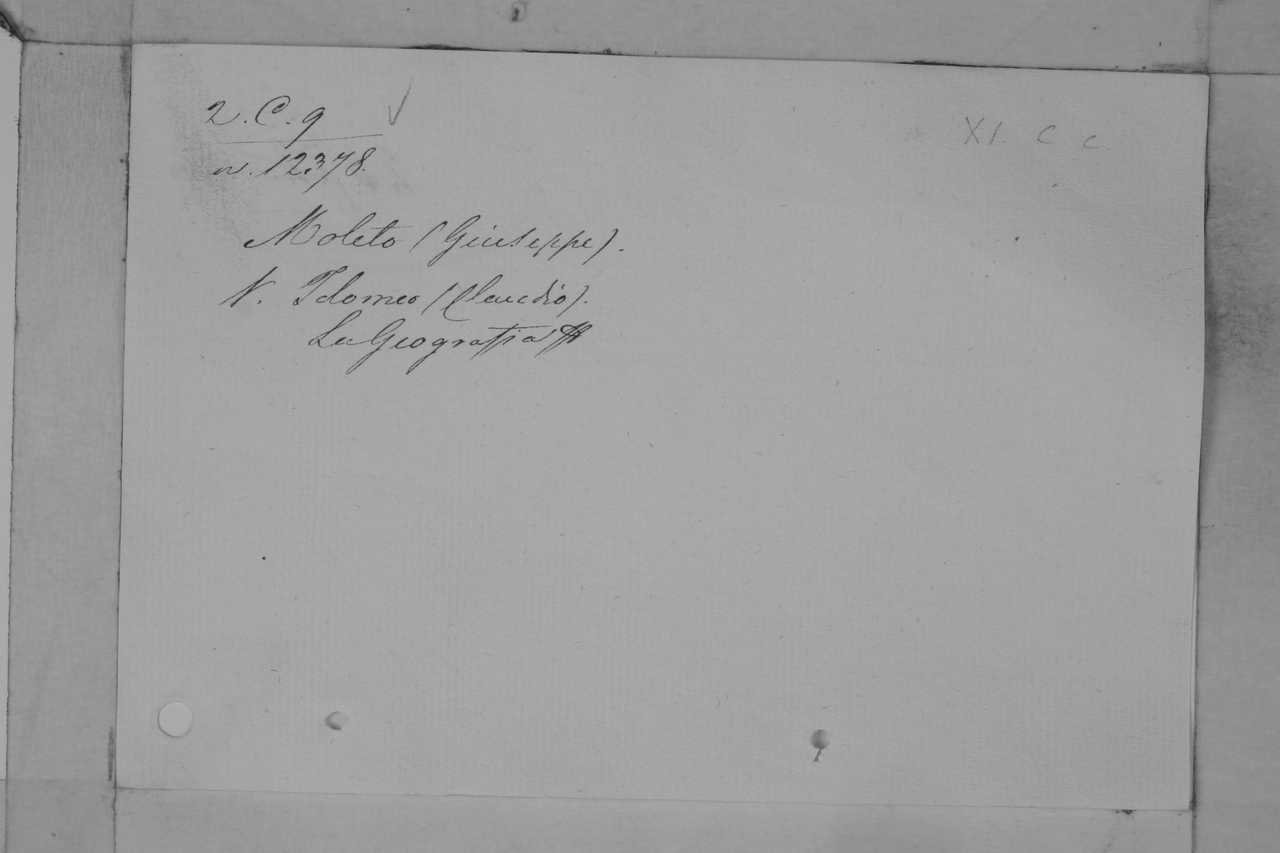 2. C. 9
XI. C C
n. 12378.
Moleto (Giuseppe).
V. Tolomeo (Claudio).
La Geografia